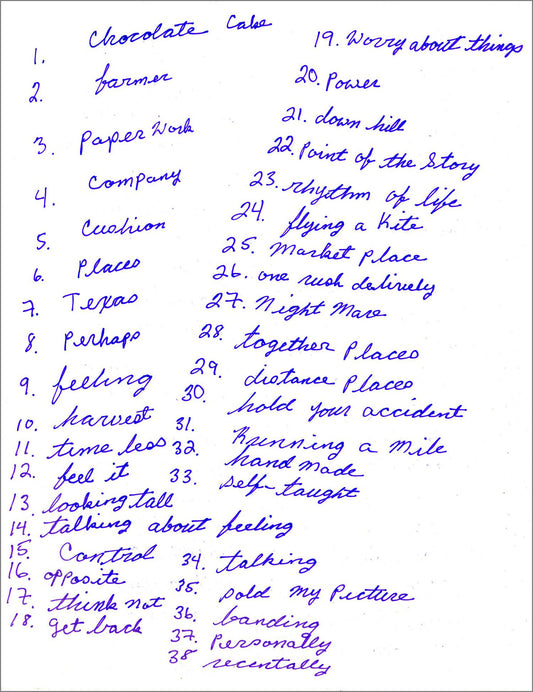 1. Chocolate Cake
2. farmer
3. Paper Work
4. Company
5. Cushion
6. Places
7. Texas
8. Perhaps
9. feeling
10. harvest
11. time less
12. feel it
13. looking tall
14. talking about feeling
15. Control
16. opposite
17. think not
18. get back
19. Worry about things
20. Power
21. down hill
22. Point of the Story
23. rhythm of life
24. flying a Kite
25. Market Place
26. one rush delively
27. Night Mare
28. together Places
29. distance Places
30. hold your accident
31. Running a Mile
32. hand made
33. self-taught
34. talking
35. sold my Picture
36. banding
37. Personally
38 recentally